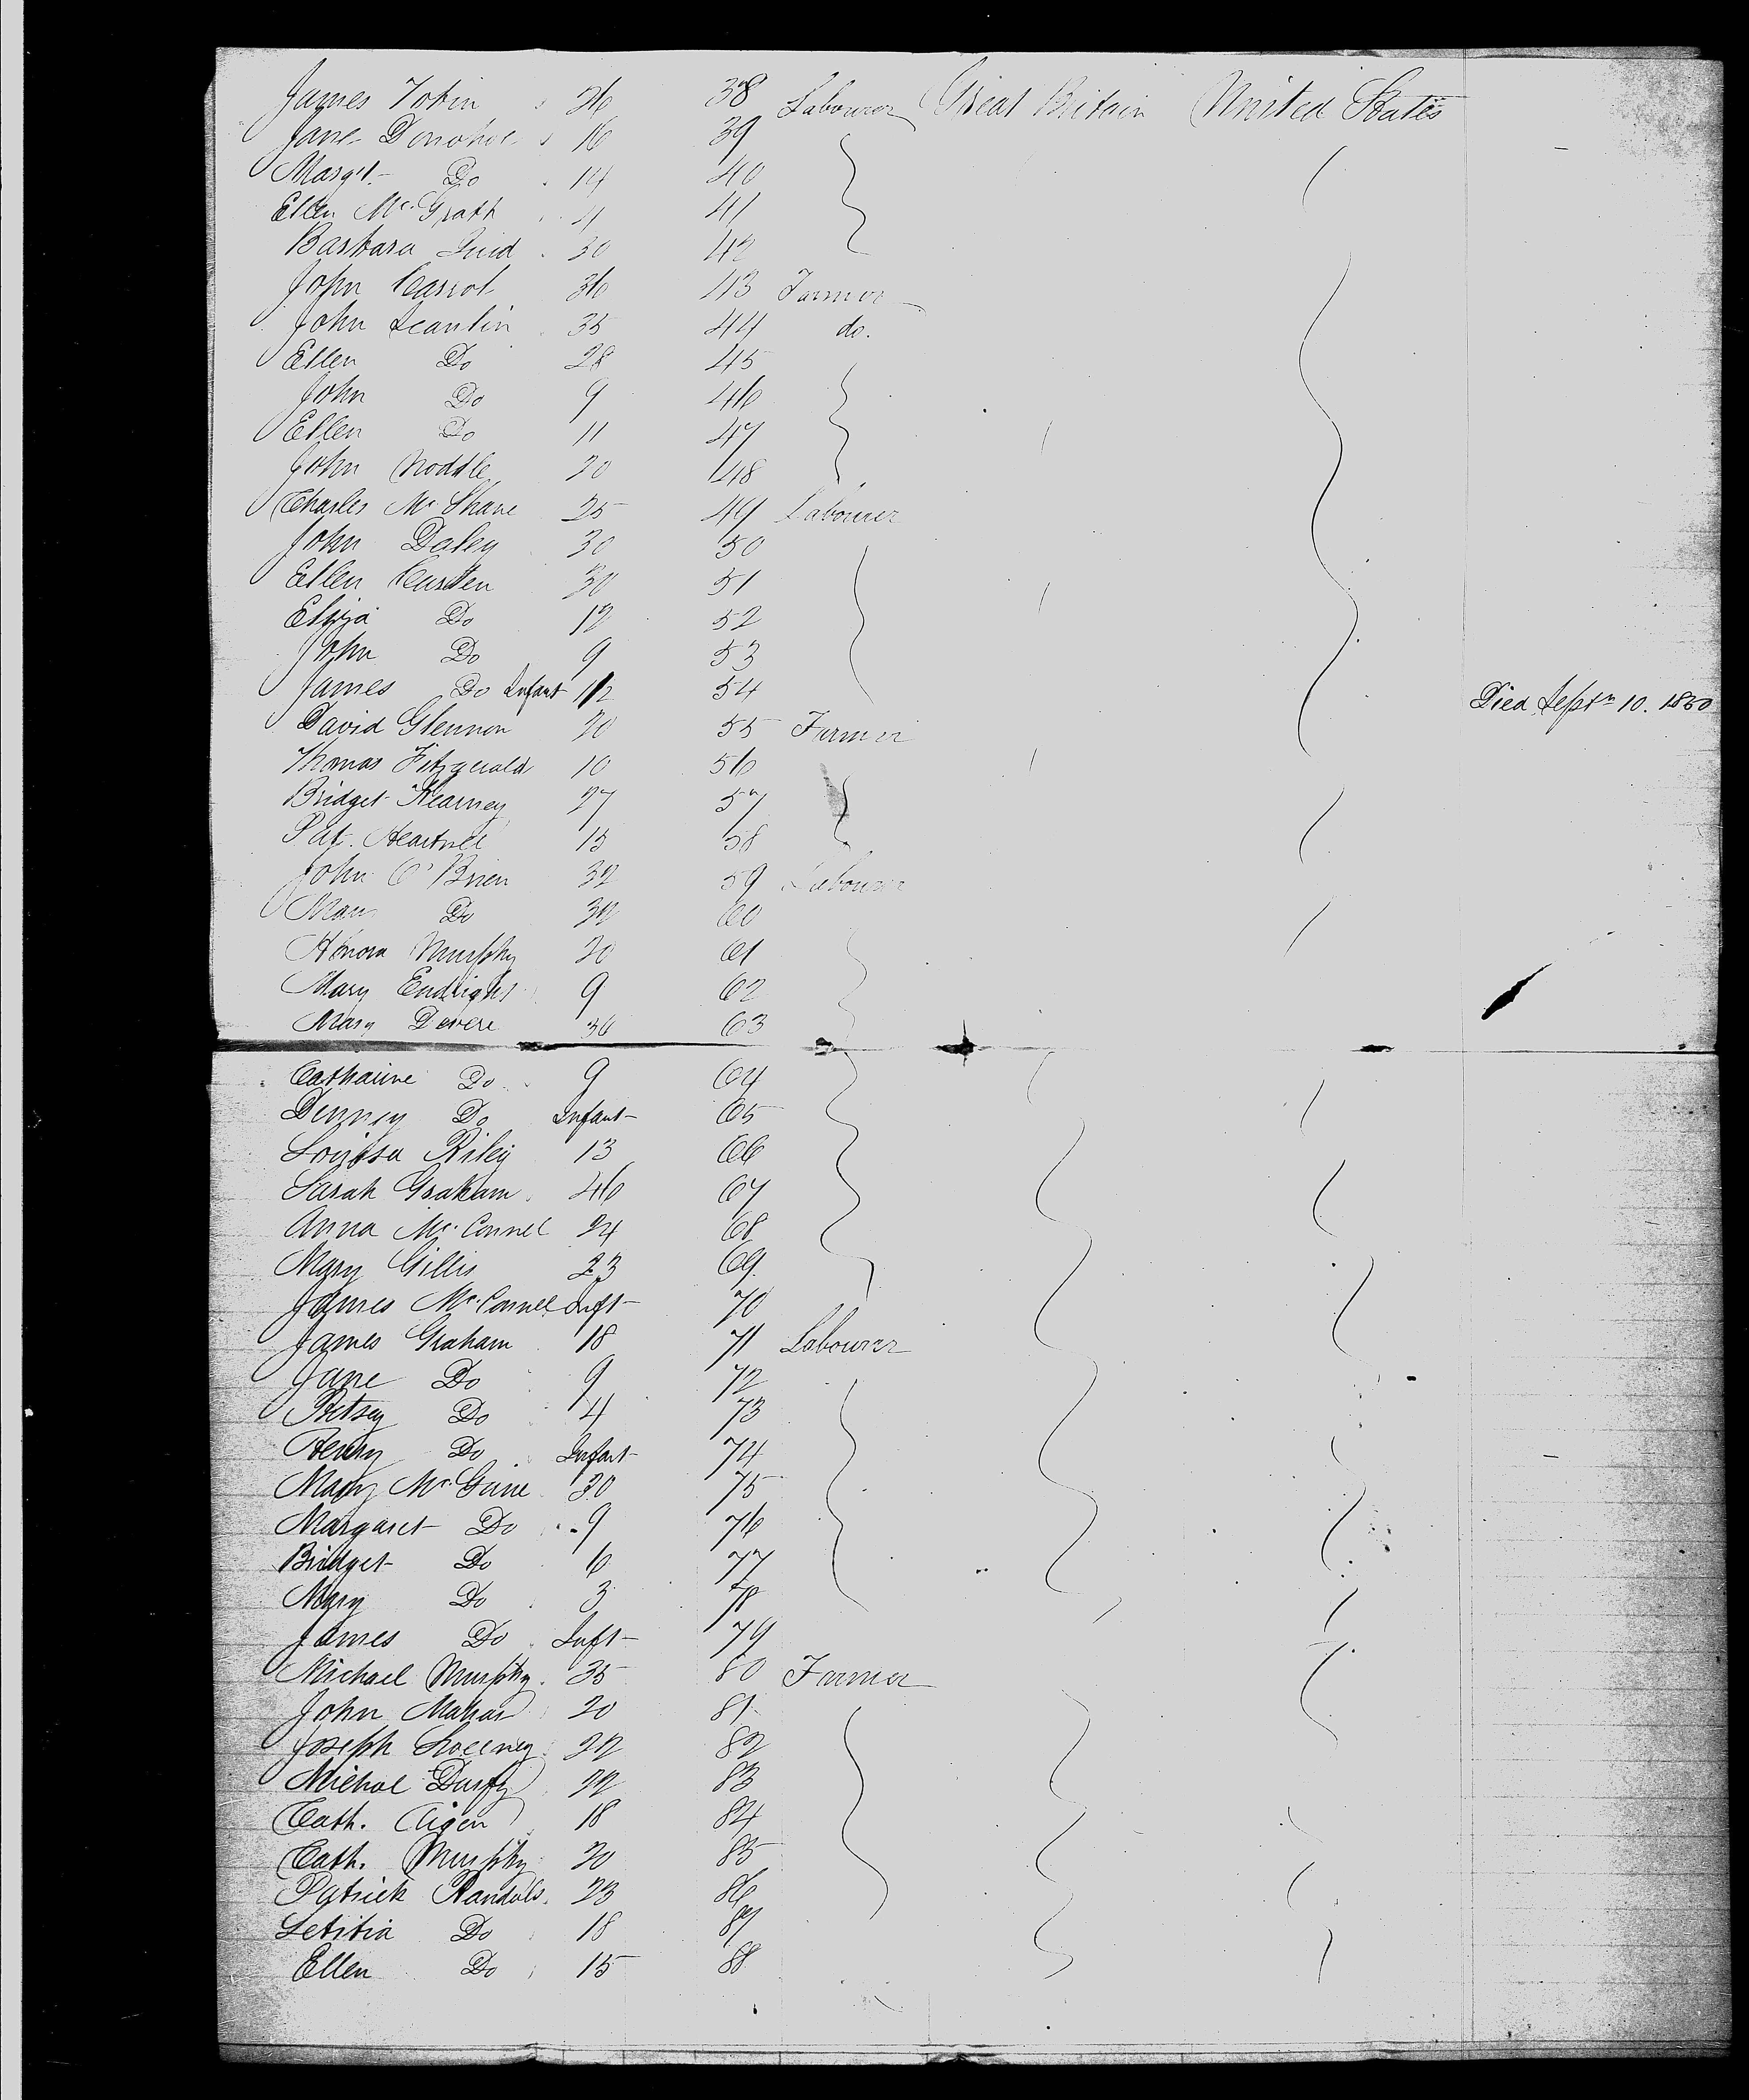 James Tobin 26 38 Labourer Great Britain United States
Jane Donohoe 16 39
Margt. Do 14 40
Ellen Mc.Grath 4 41
Barbara 30 42
John 36 43 Farmer
John Scanlin 35 44 do.
Ellen Do 28 45
John Do 9 46
Ellen Do 11 47
John Noddle 20 48
Charles Mc Shane 25 49 Labourer
John Daley 30 50
Ellen 30 51
Eliza Do 12 52
John Do 9 53
James Do Infant 1/2 54 Died Septr 10. 1850
David Glennon 20 55 Farmer
Thomas Fitzgerald 10 56
Bridget Kearney 27 57
Pat. Heartnel 15 58
John O'Brien 32 59 Labourer
Mary Do 32 60
Honora Murphy 20 61
Mary Endright 9 62
Mary Devere 36 63
Catharine Do 9 64
Denney Do Infant 65
Louisa Riley 13 66
Sarah Graham 46 67
Anna Mc.Connel 24 68
Mary Gillis 23 69
James Mc.Connel Inft 70
James Graham 18 71 Labourer
Jane Do 9 72
Betsey Do 4 73
Henry Do Infant 74
Mary Mc. 30 75
Margaret Do 9 76
Bridget Do 6 77
Mary Do 3 78
James Do Inft 79
Michael Murphy 35 80 Farmer
John Mahar 20 81
Joseph 22 82
Michal Duffy 22 83
Cath. 18 84
Cath. Murphy 20 85
Patrick Randals 23 86
Letitia Do 18 87
Ellen Do 15 88